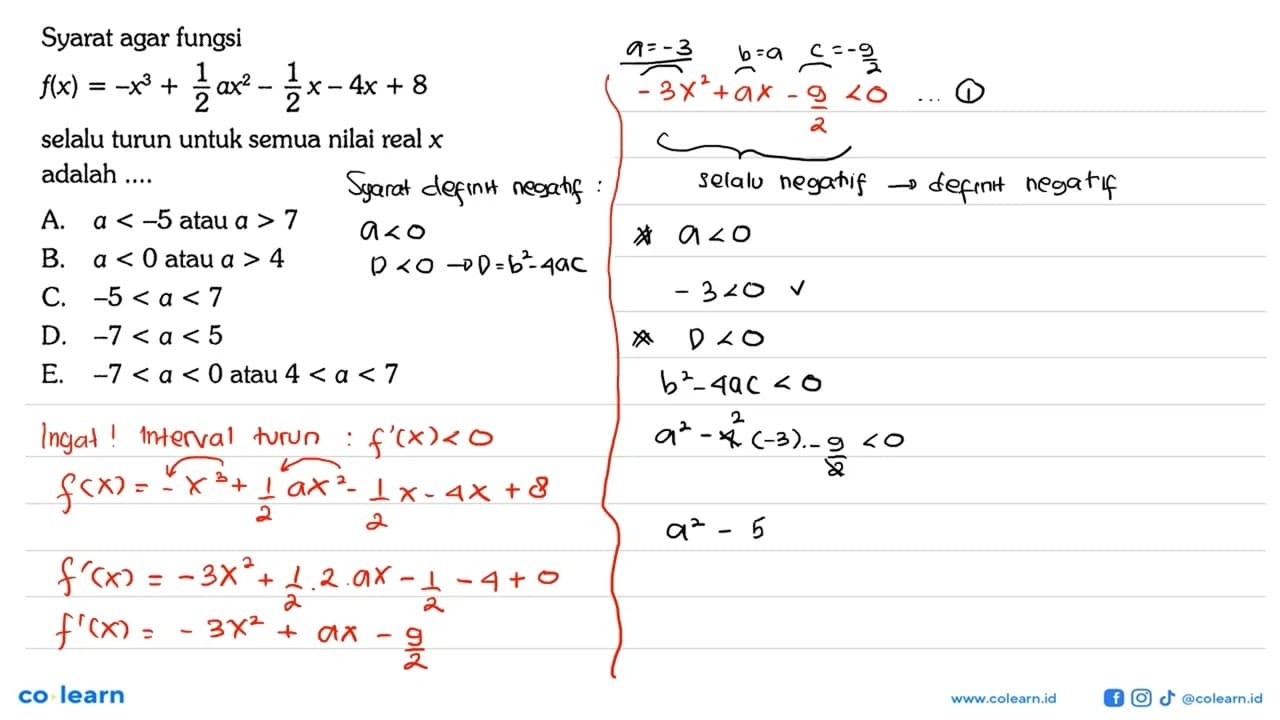 Syarat agar fungsi
f(x) = –x³ + 1/2 ax² – 1/2 x – 4x + 8
selalu turun untuk semua nilai real x
adalah ....
A. a < –5 atau a > 7
B. a < 0 atau a > 4
C. –5 < a < 7
D. –7 < a < 5
E. –7 < a < 0 atau 4 < a < 7
Syarat definit negatif :
a < 0
D < 0 → D = b² - 4ac
Ingat ! Interval turun : f'(x) < 0
f(x) = - x³ + 1/2 ax² - 1/2 x - 4x + 8
f'(x) = - 3x² + 1/2 . 2 . ax - 1/2 - 4 + 0
f'(x) = - 3x² + ax - 9/2
a = -3 b = a c = -9/2
- 3x² + ax - 9/2 < 0 ... ①
selalu negatif → definit negatif
* a < 0
- 3 < 0 ✓
* D < 0
b² - 4ac < 0
a² - 4 2 (-3) . - 9/2 < 0
a² - 5
co learn
www.colearn.id
@colearn.id